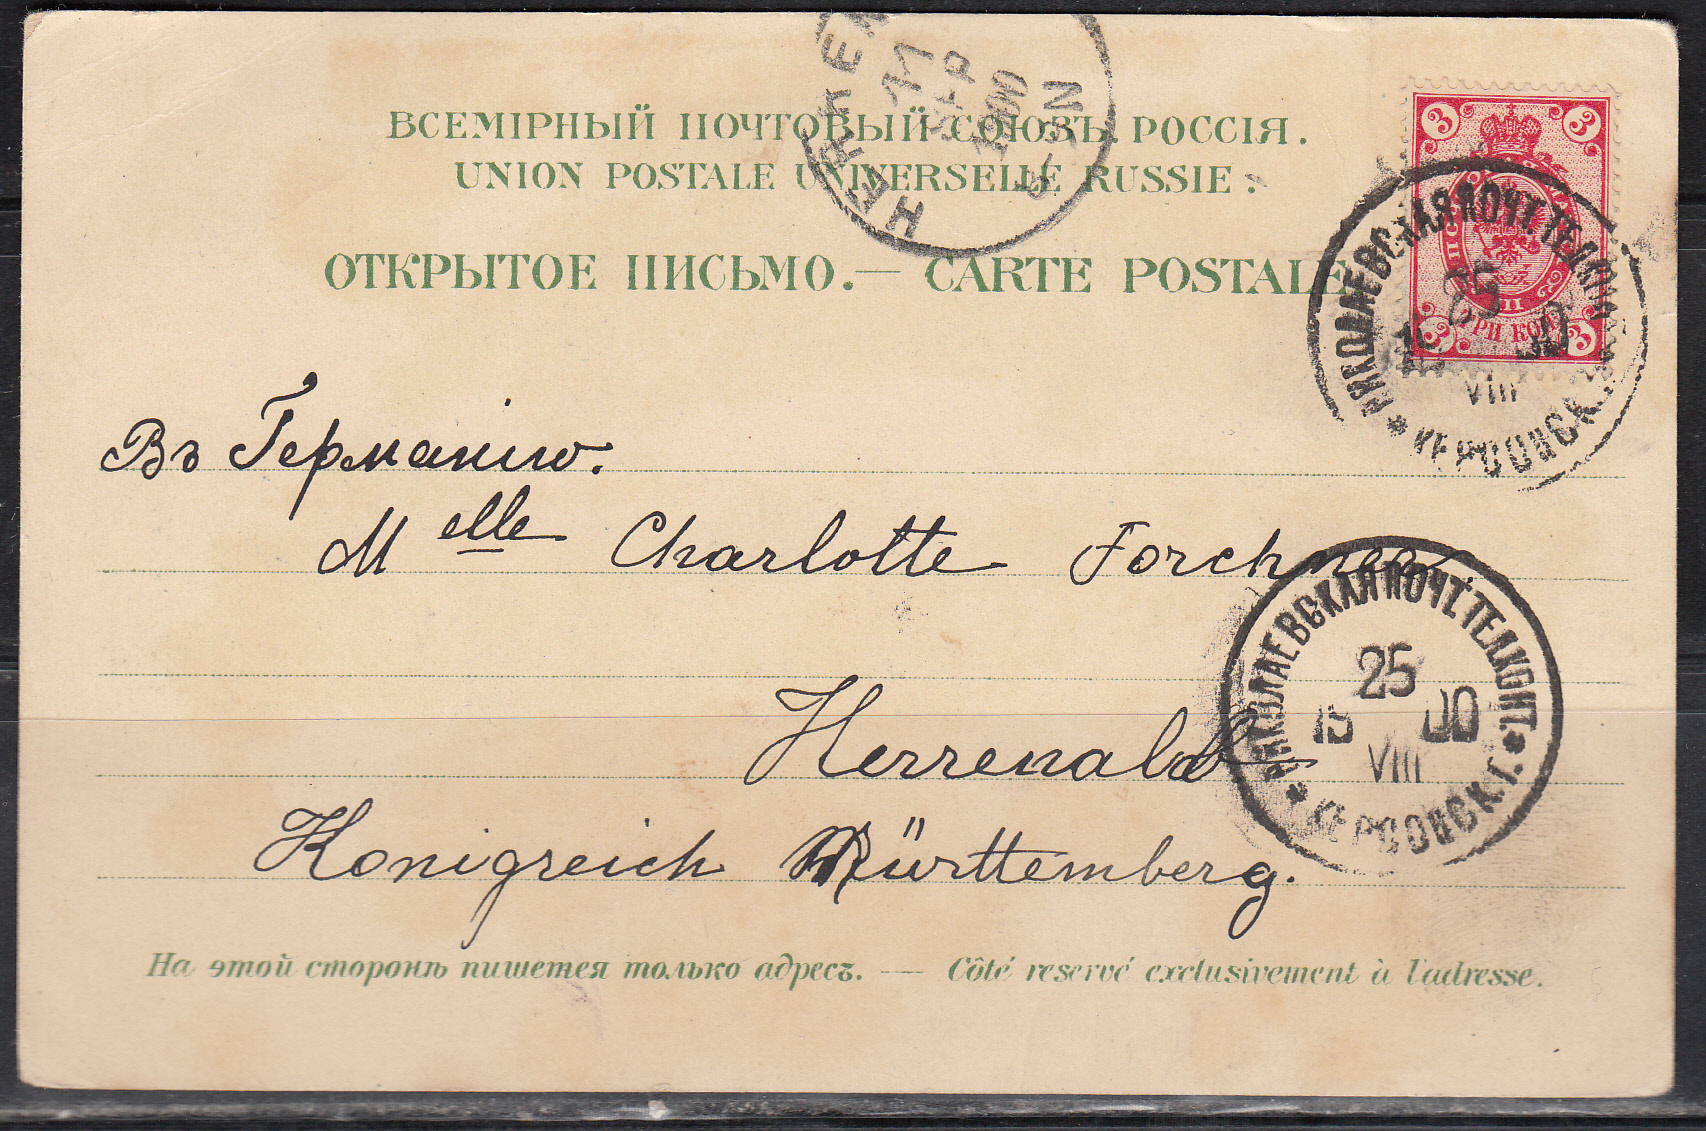 ВСЕМІРНЫЙ ПОЧТОВЫЙ СОЮЗЪ. РОССІЯ.
UNION POSTALE UNIVERSELLE RUSSIE.
ОТКРЫТОЕ ПИСЬМО. — CARTE POSTALE
11
SEP
1900
5-6N
3 3
3 3
ТРИ КОП.
НИКОЛАЕВСКАЯ ПОЧТ. ТЕЛ. КОНТ.
25
19 00
VIII
ХЕРСОНСК. Г.
Въ Германію.
Melle Charlotte Forchner.
Herrenalb
Konigreich Württemberg.
НИКОЛАЕВСКАЯ ПОЧТ. ТЕЛ. КОНТ.
25
19 00
VIII
ХЕРСОНСК. Г.
На этой сторонѣ пишется только адресъ. — Côté reservé exclusivement à l'adresse.